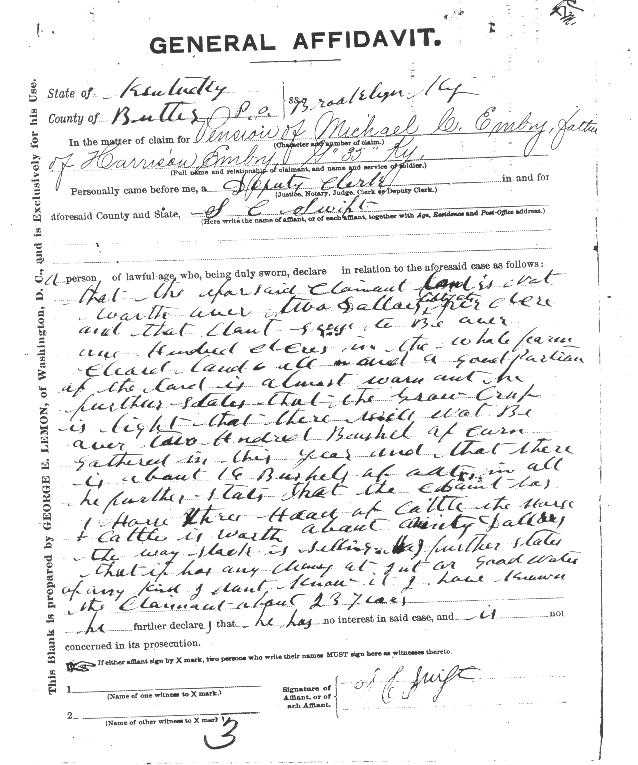 GENERAL AFFIDAVIT.
State of Kentucky
County of Butler P.O. Ky
In the matter of claim for Pension of Michael C. Embry, father
(Character and number of claim.)
of Harrison Embry, Ky.
(Full name and relationship of claimant, and name and service of soldier.)
Personally came before me, a Deputy Clerk in and for
(Justice, Notary, Judge, Clerk or Deputy Clerk.)
aforesaid County and State, S C Swift
(Here write the name of affiant, or of each affiant, together with Age, Residence and Post-Office address.)
A person of lawful age, who, being duly sworn, declare in relation to the aforesaid case as follows:
that the Claimant land is not
worth over two Dollars per
and that to Be over
one Hundred in the whole farm
land & all and a good Partian
of the land is almost worn out he
further states that the Grow Crop
is light that there will not Be
over two Hundret Bushel of Corn
gathered in this year and that there
is about 16 Bushels of in all
he further stats that the has
1 three Head of Cattle the Horse
& Cattle is worth about Dollars
the way stock is selling further states
that if has any Money at or good Notes
of any kind I dont know it I have known
the Claimant about 23 years
he further declare s that he has no interest in said case, and is not
concerned in its prosecution.
If either affiant sign by X mark, two persons who write their names MUST sign here as witnesses thereto.
1
(Name of one witness to X mark.)
2
(Name of other witness to X mark.)
Signature of
Affiant, or of
each Affiant.
S C Swift
3
This Blank is prepared by GEORGE E. LEMON, of Washington, D. C., and is Exclusively for his Use.